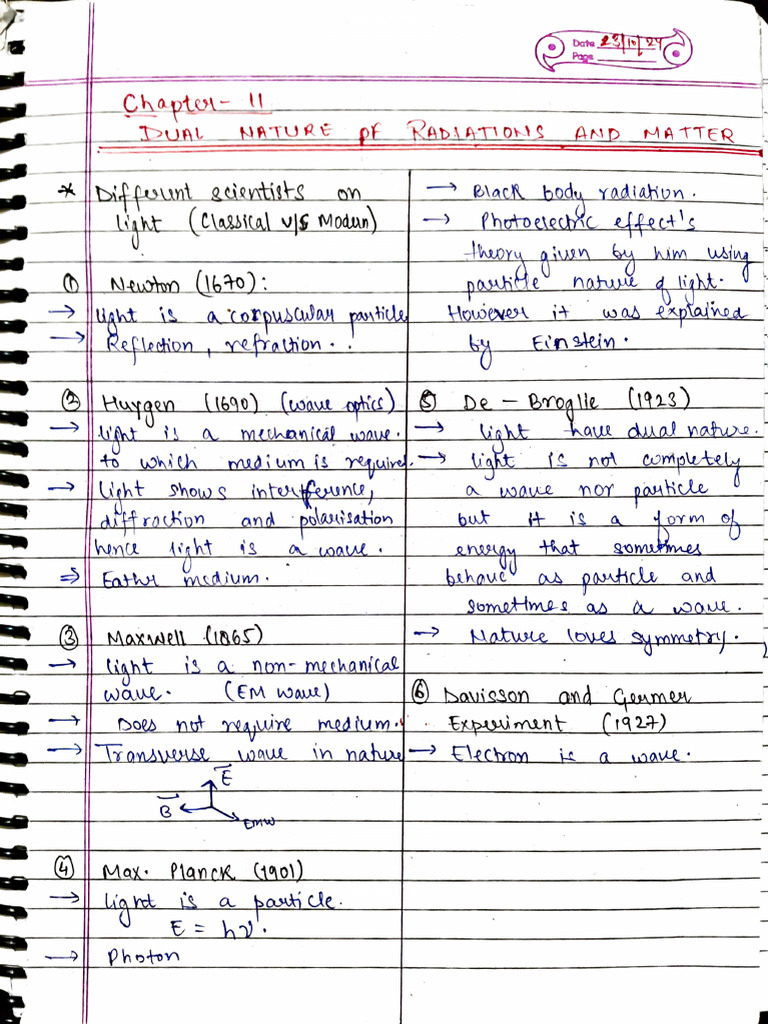 Date 23/10/24
Page
Chapter- 11
DUAL NATURE OF RADIATIONS AND MATTER
* Different scientists on
light (Classical v/s Modern)
① Newton (1670):
→ light is a corpuscular particle
→ Reflection, refraction..
② Huygen (1690) (wave optics)
→ light is a mechanical wave.
to which medium is require.
→ Light shows interference,
diffraction and polarisation
hence light is a wave.
⇒ Eathr medium.
③ Maxwell (1865)
→ light is a non-mechanical
wave. (EM wave)
→ Does not require medium.
→ Transverse wave in nature
E
B
EMW
④ Max. Planck (1901)
→ light is a particle.
E = hν.
→ Photon
→ Black body radiation.
→ Photoelectric effect's
theory given by him using
particle nature of light.
However it was explained
by Einstein.
⑤ De - Broglie (1923)
→ light have dual nature.
→ light is not completely
a wave nor particle
but it is a form of
energy that sometimes
behave as particle and
sometimes as a wave.
→ Nature loves symmetry.
⑥ Davisson and Germer
Experiment (1927)
→ Electron is a wave.